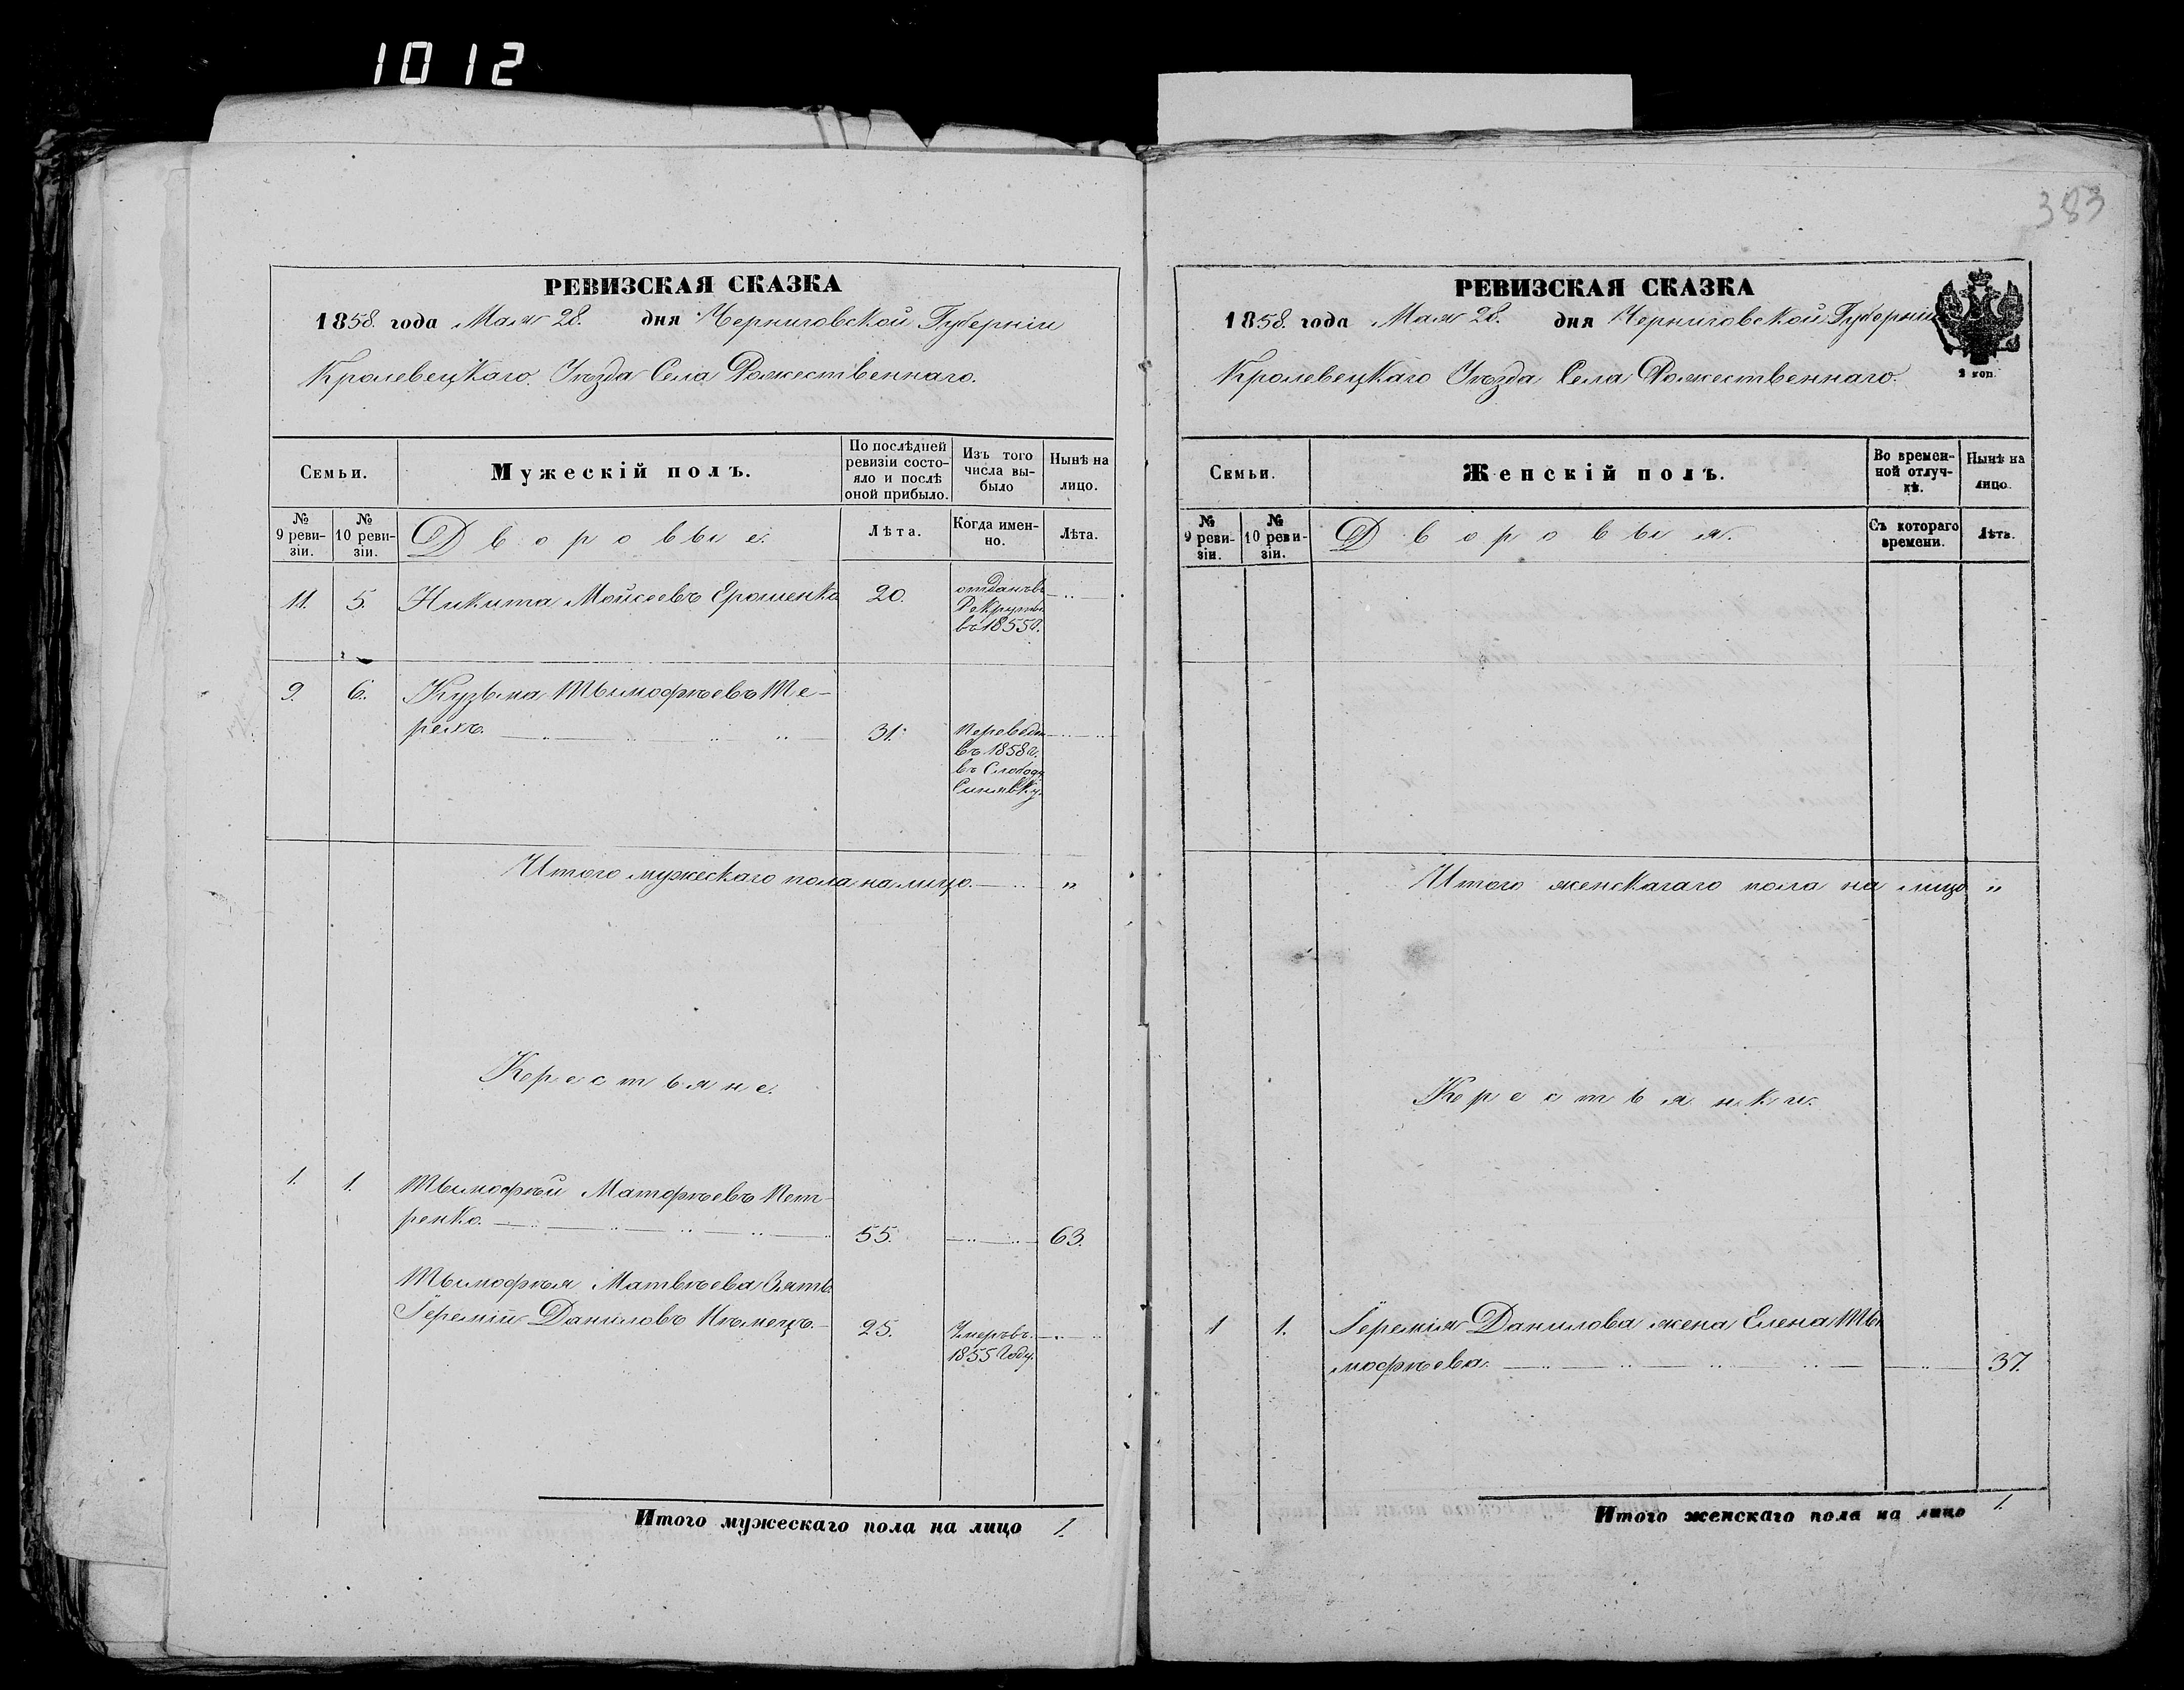 1012
РЕВИЗСКАЯ СКАЗКА
1858. года Мая 28. дня Черниговской Губернiи
Кролевецкаго Уѣзда Села Рожественнаго.
Семьи.
Мужескiй полъ.
По послѣдней ревизiи состо-
яло и послѣ
оной прибыло.
Изъ того
числа вы-
было
Нынѣ на
лицо.
№
9 реви-
зiи.
№
10 реви-
зiи.
Дворовые.
Лѣта.
Когда имен-
но.
Лѣта.
11. 5. Никита Мойсеевъ Ерошенко 20. отданъ въ
Рекруты
въ 1855г.
9. 6. Кузьма Тымофѣевъ Те-
рехъ. 31. Переведен
въ 1858г.
въ Слободу
Синявку.
Итого мужескаго пола на лицо. "
Крестьяне.
1. 1. Тымофѣй Матфѣевъ Пет-
ренко. 55. 63.
Тымофѣя Матвѣева Зять
Iеремiй Даниловъ Нѣмецъ. 25. Умеръ въ
1855 Году.
Итого мужескаго пола на лицо 1.
383
РЕВИЗСКАЯ СКАЗКА
1858. года Мая 28. дня Черниговской Губернiи
Кролевецкаго Уѣзда Села Рожественнаго.
2 коп.
Семьи.
Женскiй полъ.
Во времен-
ной отлуч-
кѣ.
Нынѣ на
лицо.
№
9 реви-
зiи.
№
10 реви-
зiи.
Дворовыя.
Съ котораго
времени.
Лѣта.
Итого женскагаго пола на лицо "
Крестьянки.
1 1. Iеремiя Данилова жена Елена Ты
мофѣева. 37.
Итого женскаго пола на лицо 1.